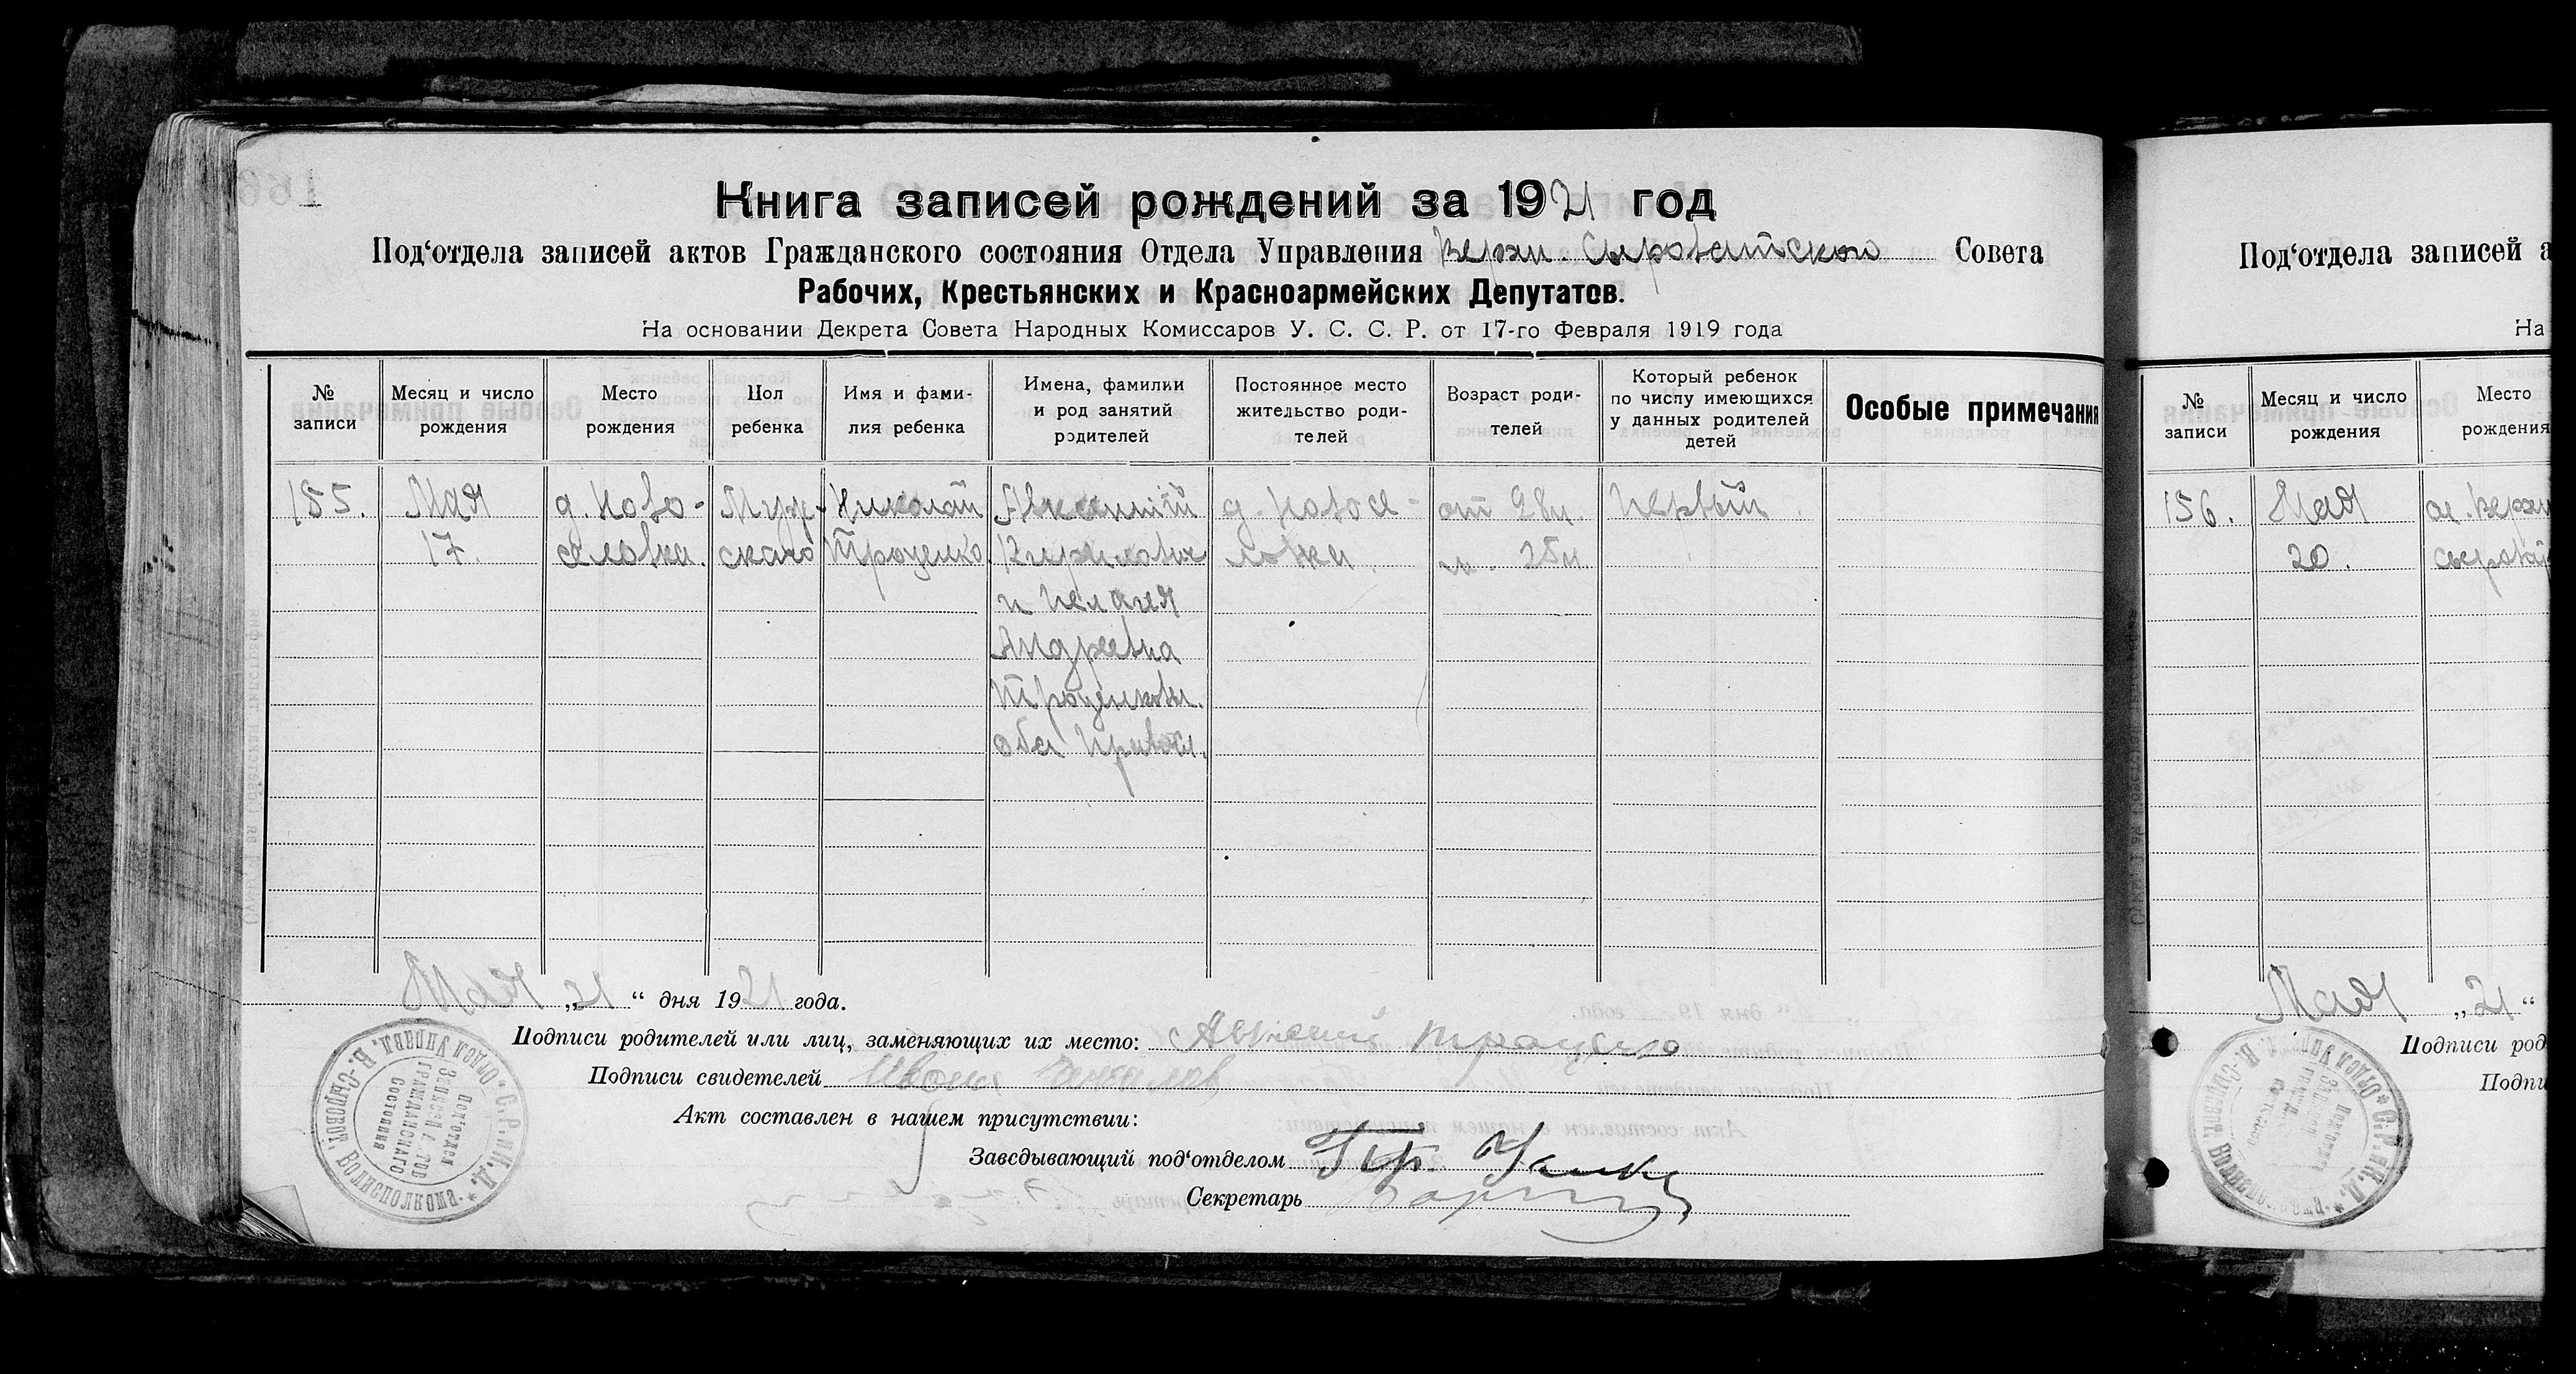 Книга записей рождений за 1921 год
Под‘отдела записей актов Гражданского состояния Отдела Управления Верхн. Сыроватского Совета
Рабочих, Крестьянских и Красноармейских Депутатов.
На основании Декрета Совета Народных Комиссаров У. С. С. Р. от 17-го Февраля 1919 года
№ записи
Месяц и число рождения
Место рождения
Пол ребенка
Имя и фами-
лия ребенка
Имена, фамилии
и род занятий
родителей
Постоянное место
жительство роди-
телей
Возраст роди-
телей
Который ребенок
по числу имеющихся
у данных родителей
детей
Особые примечания
155.
Мая
17.
д. Ново-
селовка.
Муж-
скаго
Николай
Троценко.
Авксентий
Кирилович
и Пелагея
Андреевна
Троценковы.
оба Правосл.
д. Новосе-
ловки.
от 28 л.
м. 25 л.
Первый
Мая „21“ дня 1921 года.
Подписи родителей или лиц, заменяющих их место: Авксений Троценко
Подписи свидетелей Иван
Акт составлен в нашем присутствии:
Заведывающий под‘отделом
Секретарь
* С.Р. и К.Д. * В.-Сыроват. Волисполкома. Отдел Управл.
Под‘отдел
Записей актов
Гражданскаго
состояния
Под‘отдела записей а
На
№ записи
Месяц и число рождения
Место
рождения
156.
Мая
20.
Верхн
сыроват
Мая „21“
Подписи род
Подпи